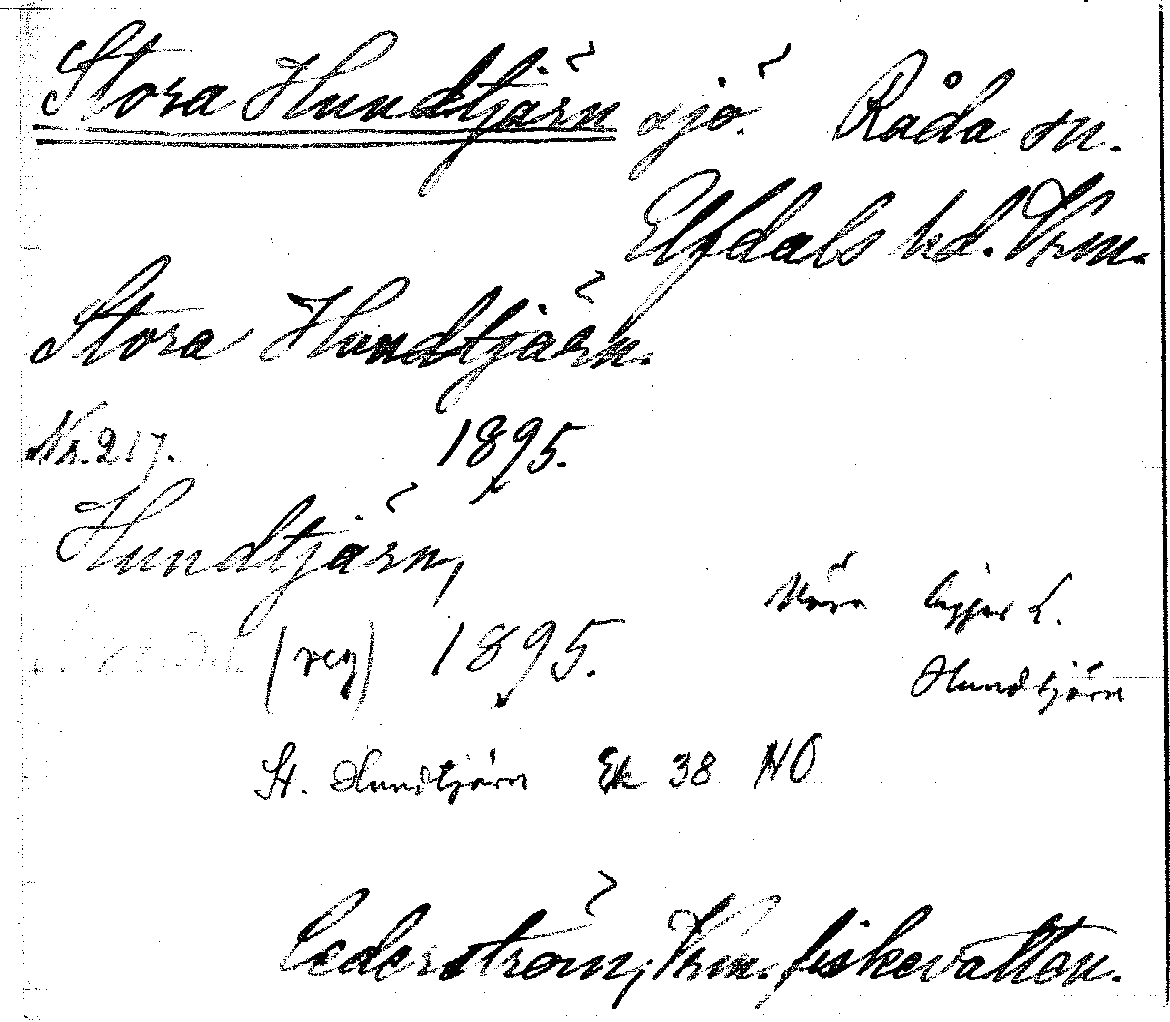 Stora Hundtjärn sjö. Råda sn.
Elfdals hd. Vrm.
Stora Hundtjärn.
Nr. 217. 1895.
Hundtjärn,
(reg) 1895.
Nära ligger L.
Hundtjärn
St. Hundtjärn Ek 38 NO
Cederström, Vrm. fiskevatten.